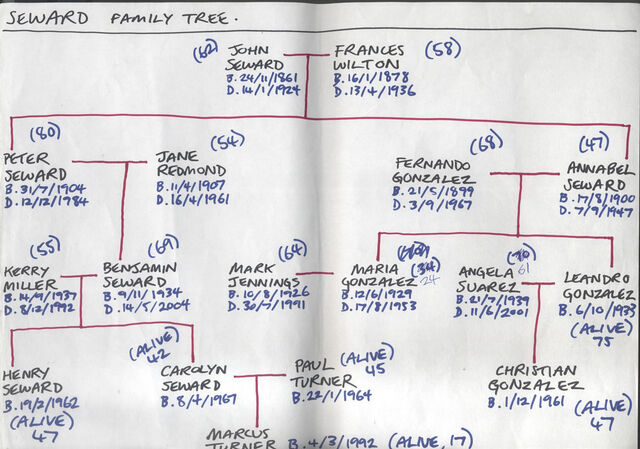 SEWARD FAMILY TREE.
(62) JOHN SEWARD
B. 24/11/1861
D. 14/1/1924
FRANCES WILTON (58)
B. 16/1/1878
D. 13/4/1936
(80)
PETER SEWARD
B. 31/7/1904
D. 12/12/1984
(54)
JANE REDMOND
B. 11/4/1907
D. 16/4/1961
(68)
FERNANDO GONZALEZ
B. 21/5/1899
D. 3/9/1967
(47)
ANNABEL SEWARD
B. 17/8/1900
D. 7/9/1947
(55)
KERRY MILLER
B. 14/9/1937
D. 8/12/1992
(69)
BENJAMIN SEWARD
B. 9/11/1934
D. 14/5/2004
(64)
MARK JENNINGS
B. 10/8/1926
D. 30/7/1991
(34)
24
MARIA GONZALEZ
B. 12/6/1929
D. 17/8/1953
61
ANGELA SUAREZ
B. 21/7/1939
D. 11/6/2001
LEANDRO GONZALEZ
B. 6/10/1933
(ALIVE)
75
HENRY SEWARD
B. 19/2/1962
(ALIVE)
47
(ALIVE)
42
CAROLYN SEWARD
B. 8/4/1967
PAUL TURNER (ALIVE)
45
B. 22/1/1964
CHRISTIAN GONZALEZ
B. 1/12/1961 (ALIVE)
47
MARCUS TURNER B. 4/3/1992 (ALIVE, 17)